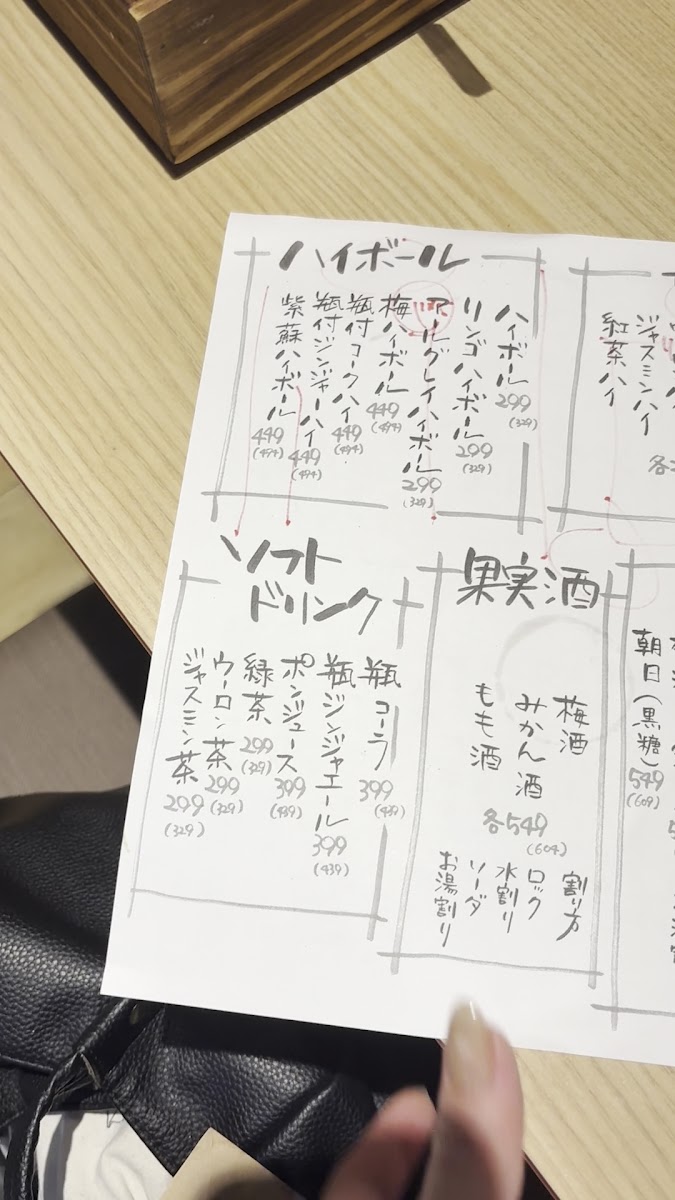 ハイボール
ハイボール 299
(329)
リンゴハイボール 299
(329)
アールグレイハイボール 299
(329)
梅ハイボール 449
(494)
瓶付コークハイ 449
(494)
瓶付ジンジャーハイ 449
(494)
紫蘇ハイボール 449
(494)
ジャスミンハイ
紅茶ハイ
各
ソフト
ドリンク
瓶コーラ 399
(439)
瓶ジンジャエール 399
(439)
ポンジュース 399
(439)
緑茶 299
(329)
ウーロン茶 299
(329)
ジャスミン茶 299
(329)
果実酒
梅酒
みかん酒
もも酒
各549
(604)
割り方
ロック
水割り
ソーダ
お湯割り
朝日(黒糖) 549
(609)